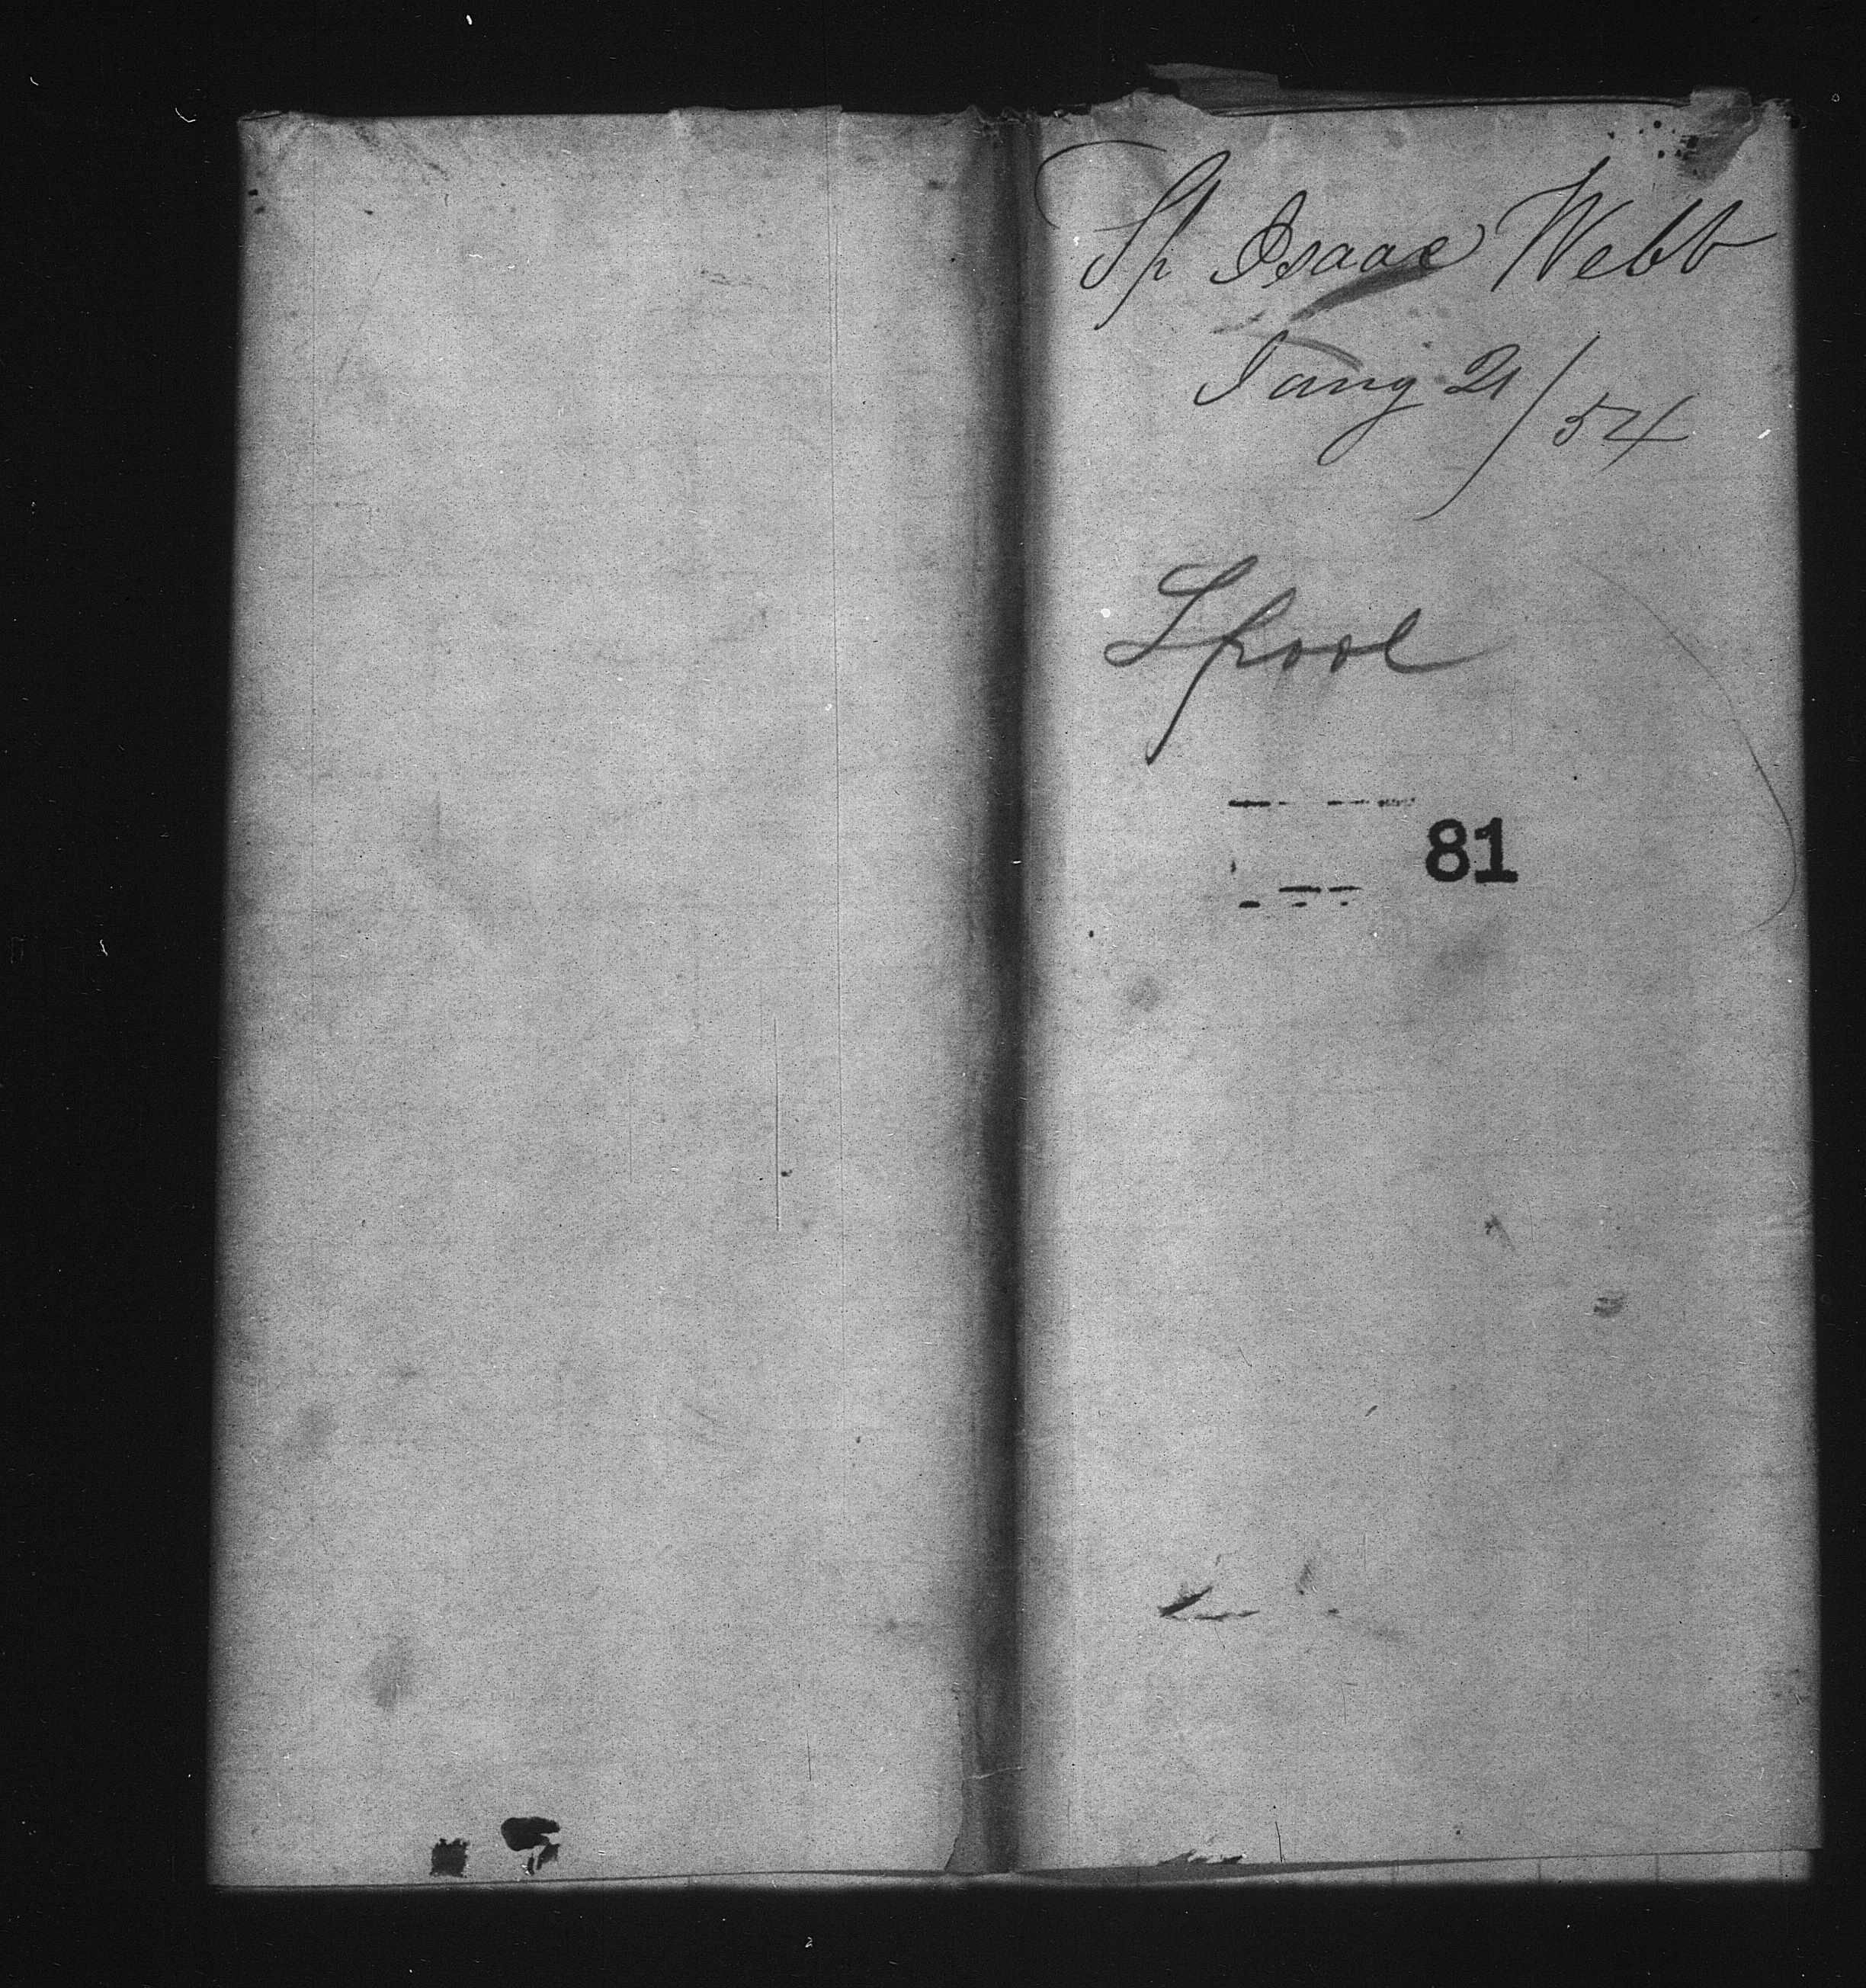 Sh Isaac Webb
Jany 21/54
Lpool
81